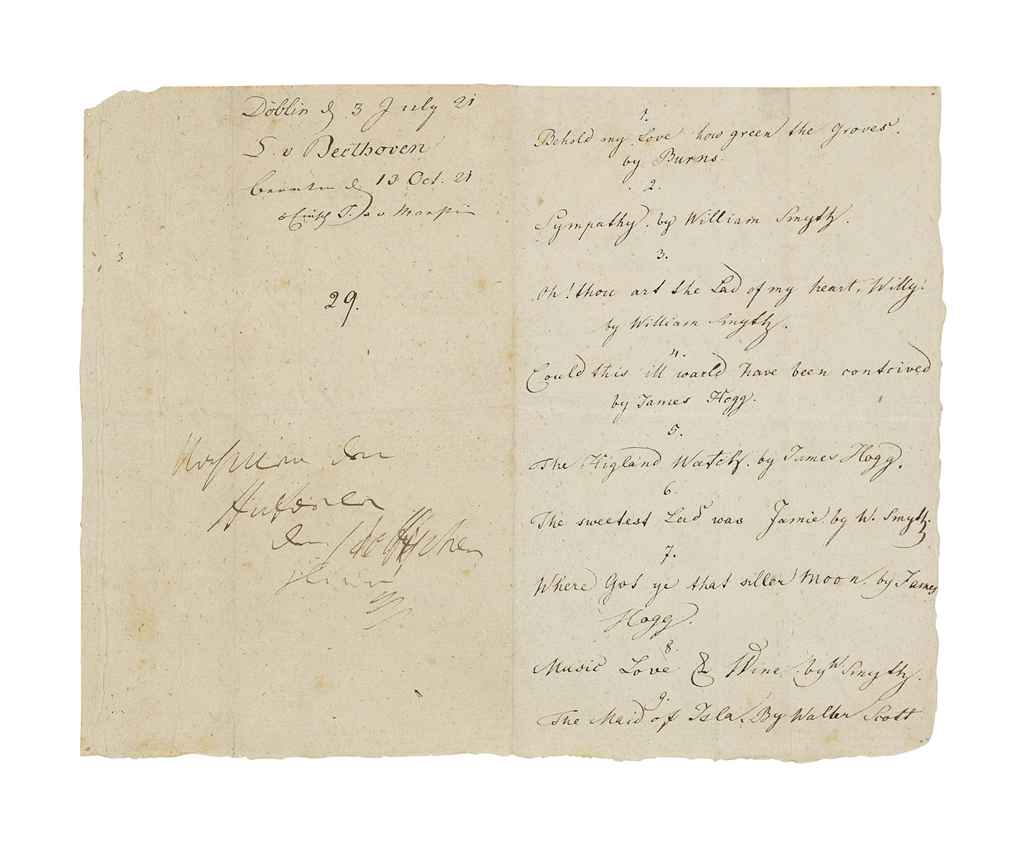 Döblin d 3 July 21
L. v Beethoven
d 13 Oct. 21
3
29.
den
1.
Behold my Love how green the groves.
by Burns.
2.
Sympathy. by William Smyth.
3.
Oh! thou art the Lad of my heart, Willy.
by William Smyth.
4.
Could this ill warld have been contrived
by James Hogg.
5.
The Higland Watch. by James Hogg.
6.
The sweetest Lad was Jamie. by W. Smyth.
7.
Where Got ye that siller Moon. by James
Hogg.
8.
Music Love & Wine. by W. Smyth.
9.
The Maid of Isla. By Walter Scott